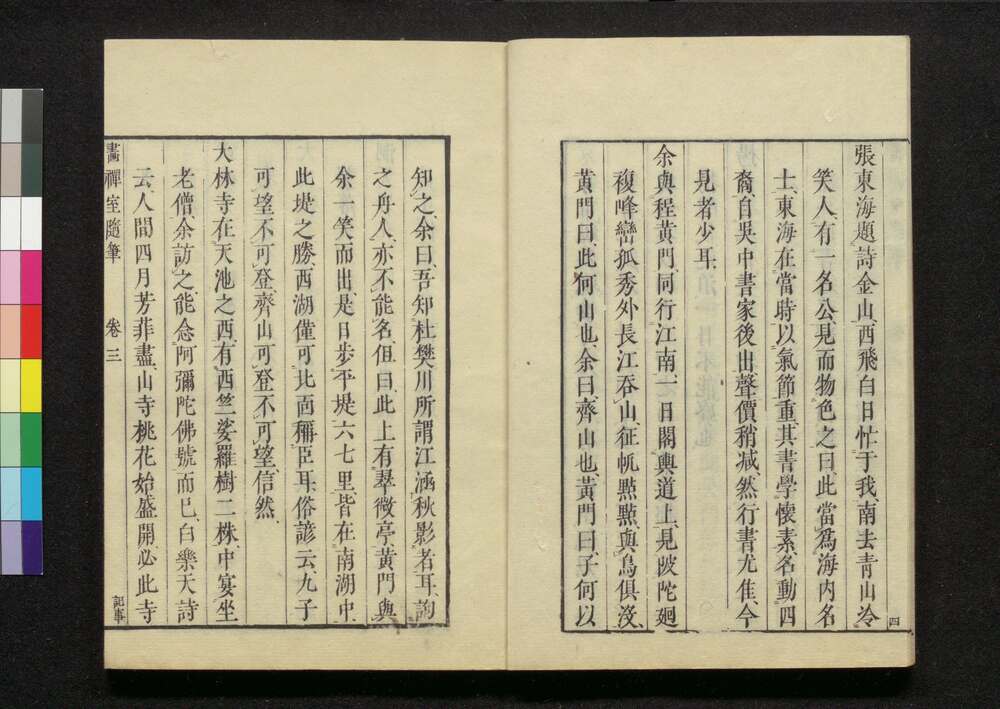 張東海題詩金山、西飛白日忙于我、南去青山冷
笑人、有一名公見而物色之曰、此當爲海内名
士、東海在當時以氣節重、其書學懷素名動四
裔、自吳中書家後出、聲價稍减、然行書尤佳、今
見者少耳、
余與程黄門同行江南、一日閣輿道上、見陂陀廻
複峰巒孤秀外長江吞山、征帆點點、與鳥俱沒、
黄門曰、此何山也、余曰、齊山也、黄門曰、子何以
四
知之、余曰、吾知杜樊川所謂江涵秋影者耳、詢
之舟人、亦不能名、但曰、此上有翠微亭、黄門與
余一笑而出、是日步平堤六七里、皆在南湖中、
此堤之勝西湖僅可比面稱臣耳、俗諺云、九子
可望不可登、齊山可登不可望、信然、
大林寺在天池之西、有西竺娑羅樹二株、中宴坐
老僧、余訪之、能念阿彌陀佛號而已、白樂天詩
云、人間四月芳菲盡、山寺桃花始盛開、必此寺
畵禪室隨筆 卷三 記事